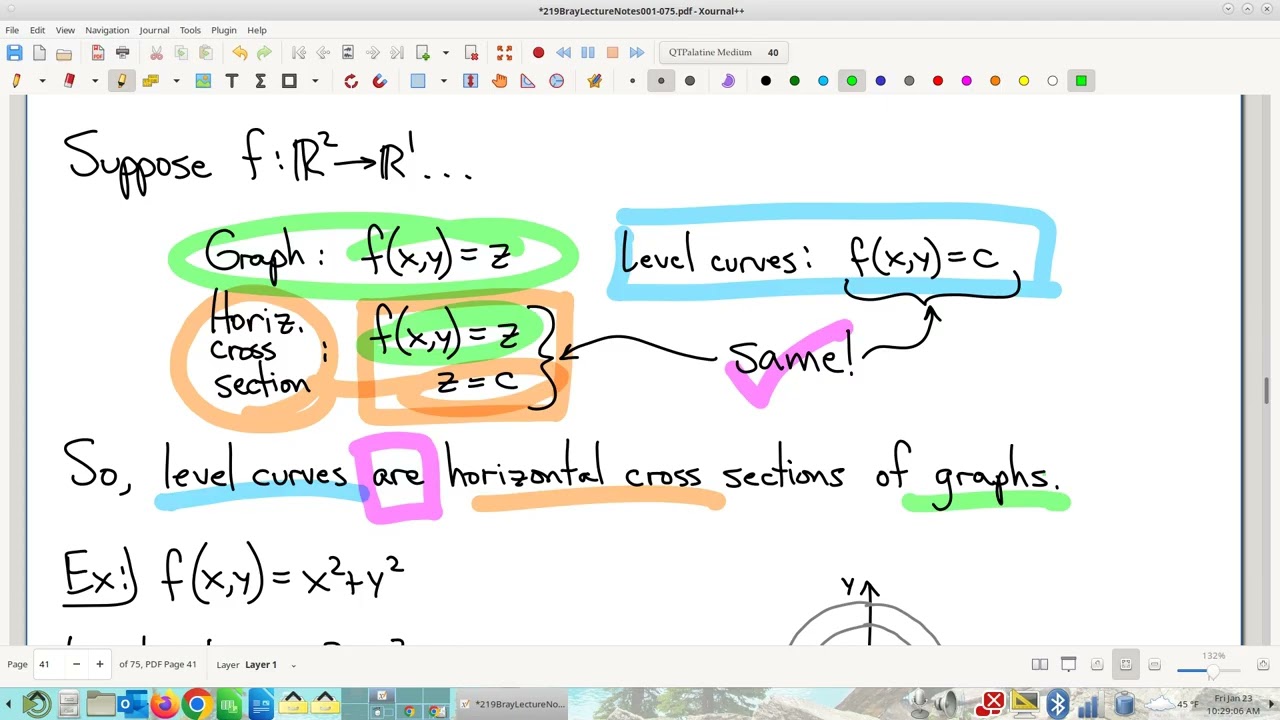 *219BrayLectureNotes001-075.pdf - Xournal++
File Edit View Navigation Journal Tools Plugin Help
QTPalatine Medium 40
Suppose f : ℝ² → ℝ¹ ...
Graph: f(x,y) = z
Level curves: f(x,y) = c
Horiz. cross section : f(x,y) = z
z = c
Same!
So, level curves are horizontal cross sections of graphs.
Ex:) f(x,y) = x² + y²
y
Page 41 of 75, PDF Page 41 Layer Layer 1 132%
*219BrayLectureNo...
45 °F
Fri Jan 23
10:29:06 AM